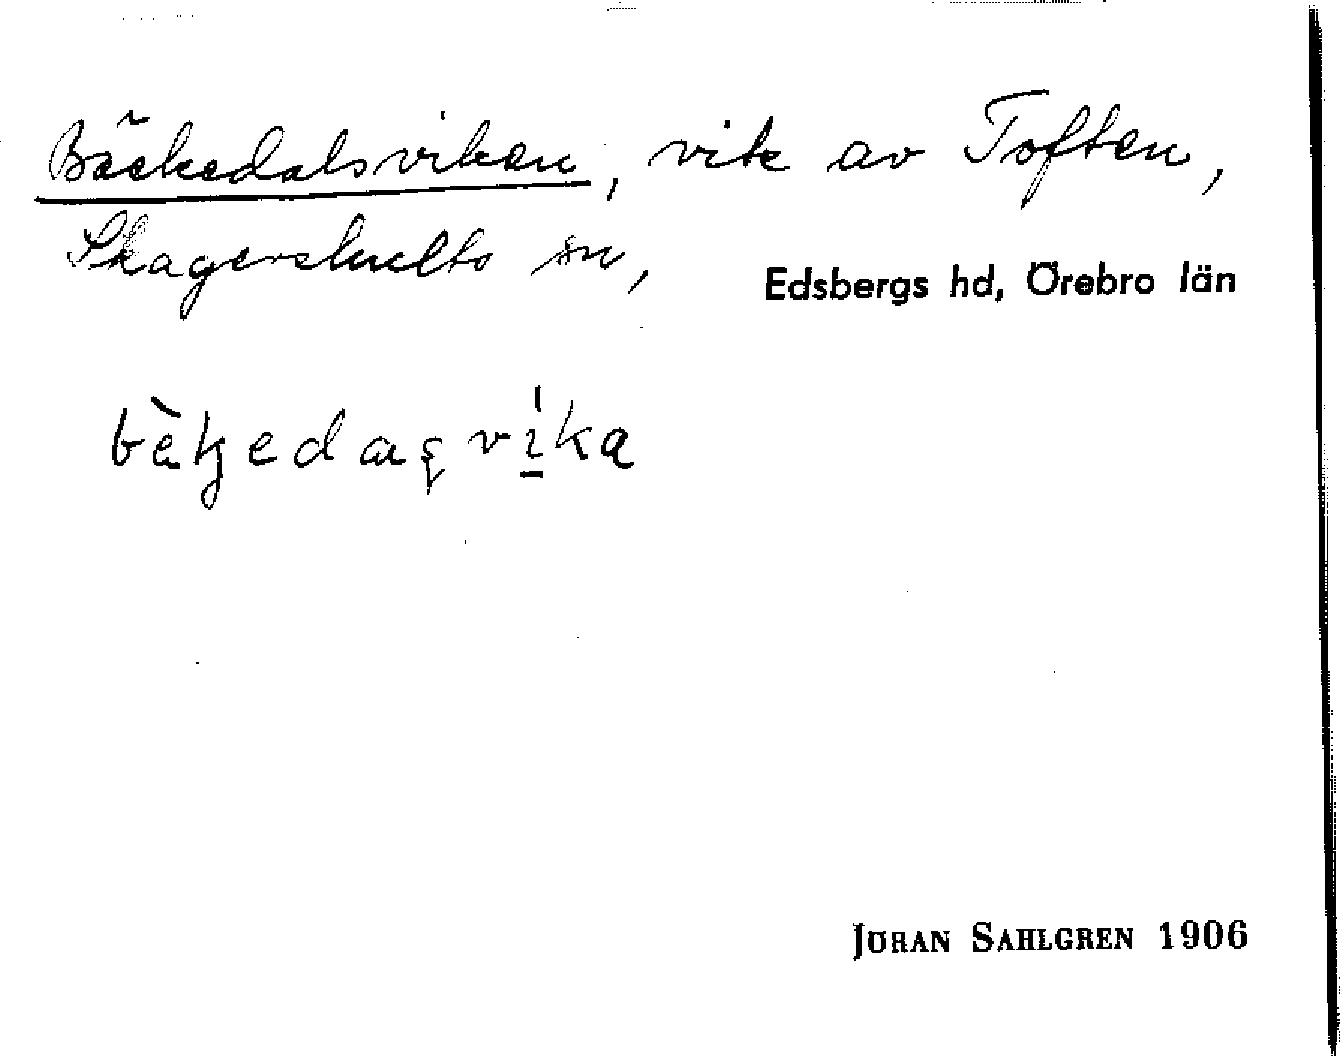 Bäckedalsviken, vik av Toften,
Skagershults sn,
Edsbergs hd, Örebro län
Jöran Sahlgren 1906